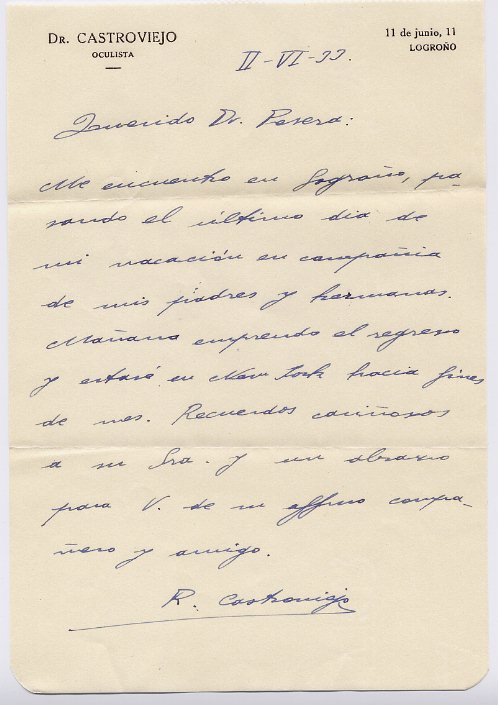 DR. CASTROVIEJO
OCULISTA
11 de junio, 11
LOGROÑO
II-VI-33.
Querido Dr. Perera:
Me encuentro en Logroño, pa-
sando el último dia de
mi vacación en compañia
de mis padres y hermanas.
Mañana emprendo el regreso
y estaré en New York hacia fines
de mes. Recuerdos cariñosos
a su Sra. y un abrazo
para V. de su affmo compa-
ñero y amigo.
R. Castroviejo